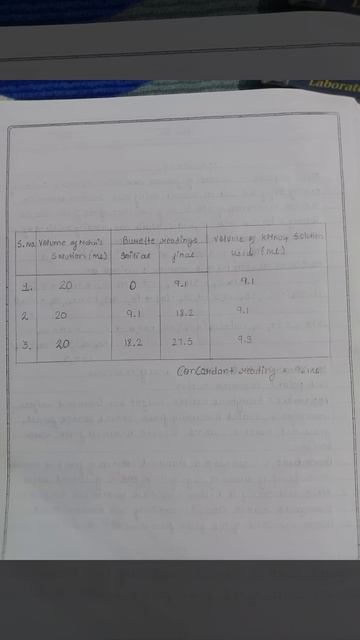 Laborato
S.No Volume of Mohr's Burette readings Volume of KMnO4 Solution
Solution (mL) Initial final Used (mL)
1. 20 0 9.1 9.1
2 20 9.1 18.2 9.1
3. 20 18.2 27.5 9.3
Concordant reading =